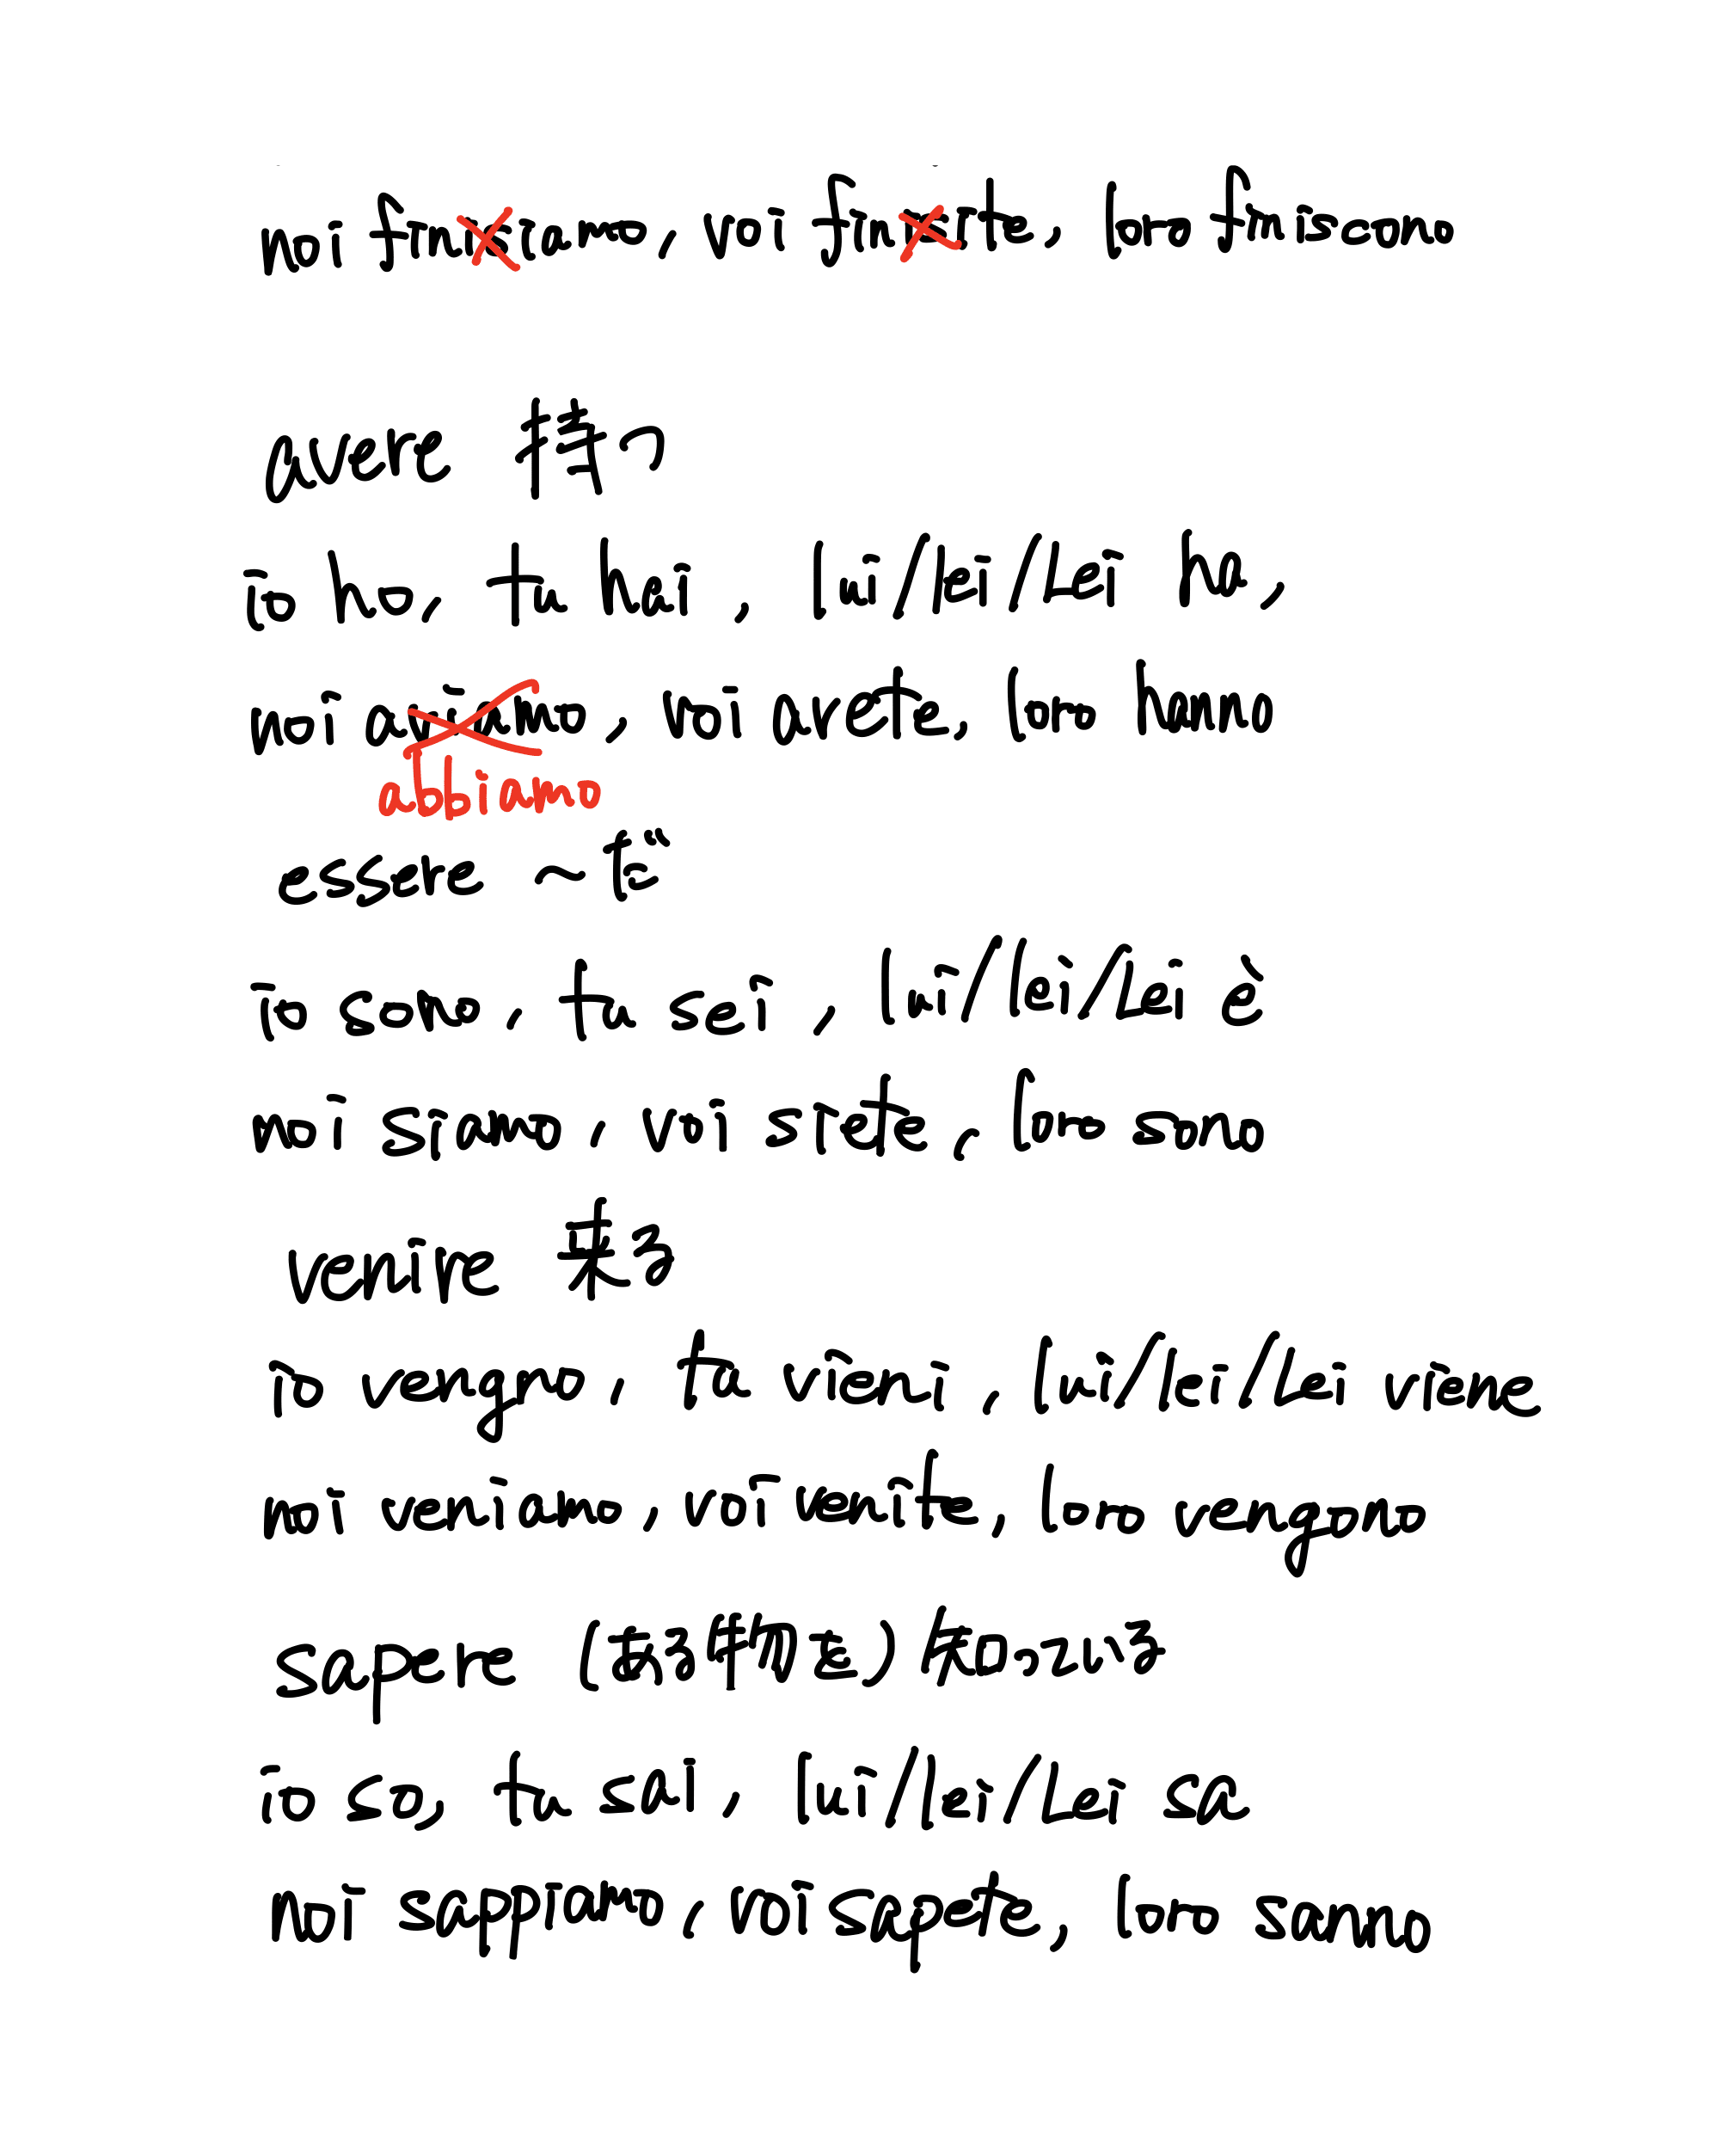 noi finisiamo, voi finisite, loro finiscono
avere 持つ
io ho, tu hai, lui/lei/Lei ha,
noi aviamo, voi avete, loro hanno
abbiamo
essere ~だ
io sono, tu sei, lui/lei/Lei è
noi siamo, voi siete, loro sono
venire 来る
io vengno, tu vieni, lui/lei/Lei viene
noi veniamo, voi venite, loro vengono
sapere (ある物を) 知っている
io so, tu sai, lui/lei/Lei sa
noi sappiamo, voi sapete, loro sanno